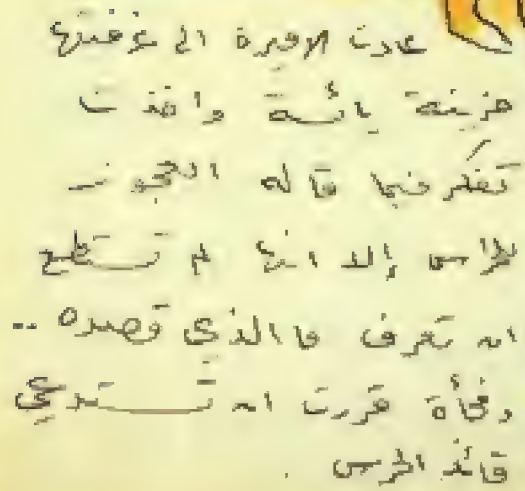 عادت الاميرة الى غرفتها
حزينة يائسة وأخذت
تفكر فيما قاله العجوز
للحرس إلا انها لم تستطع
ان تعرف ما الذي قصده ..
وفجأة قررت ان تستدعي
قائد الحرس .